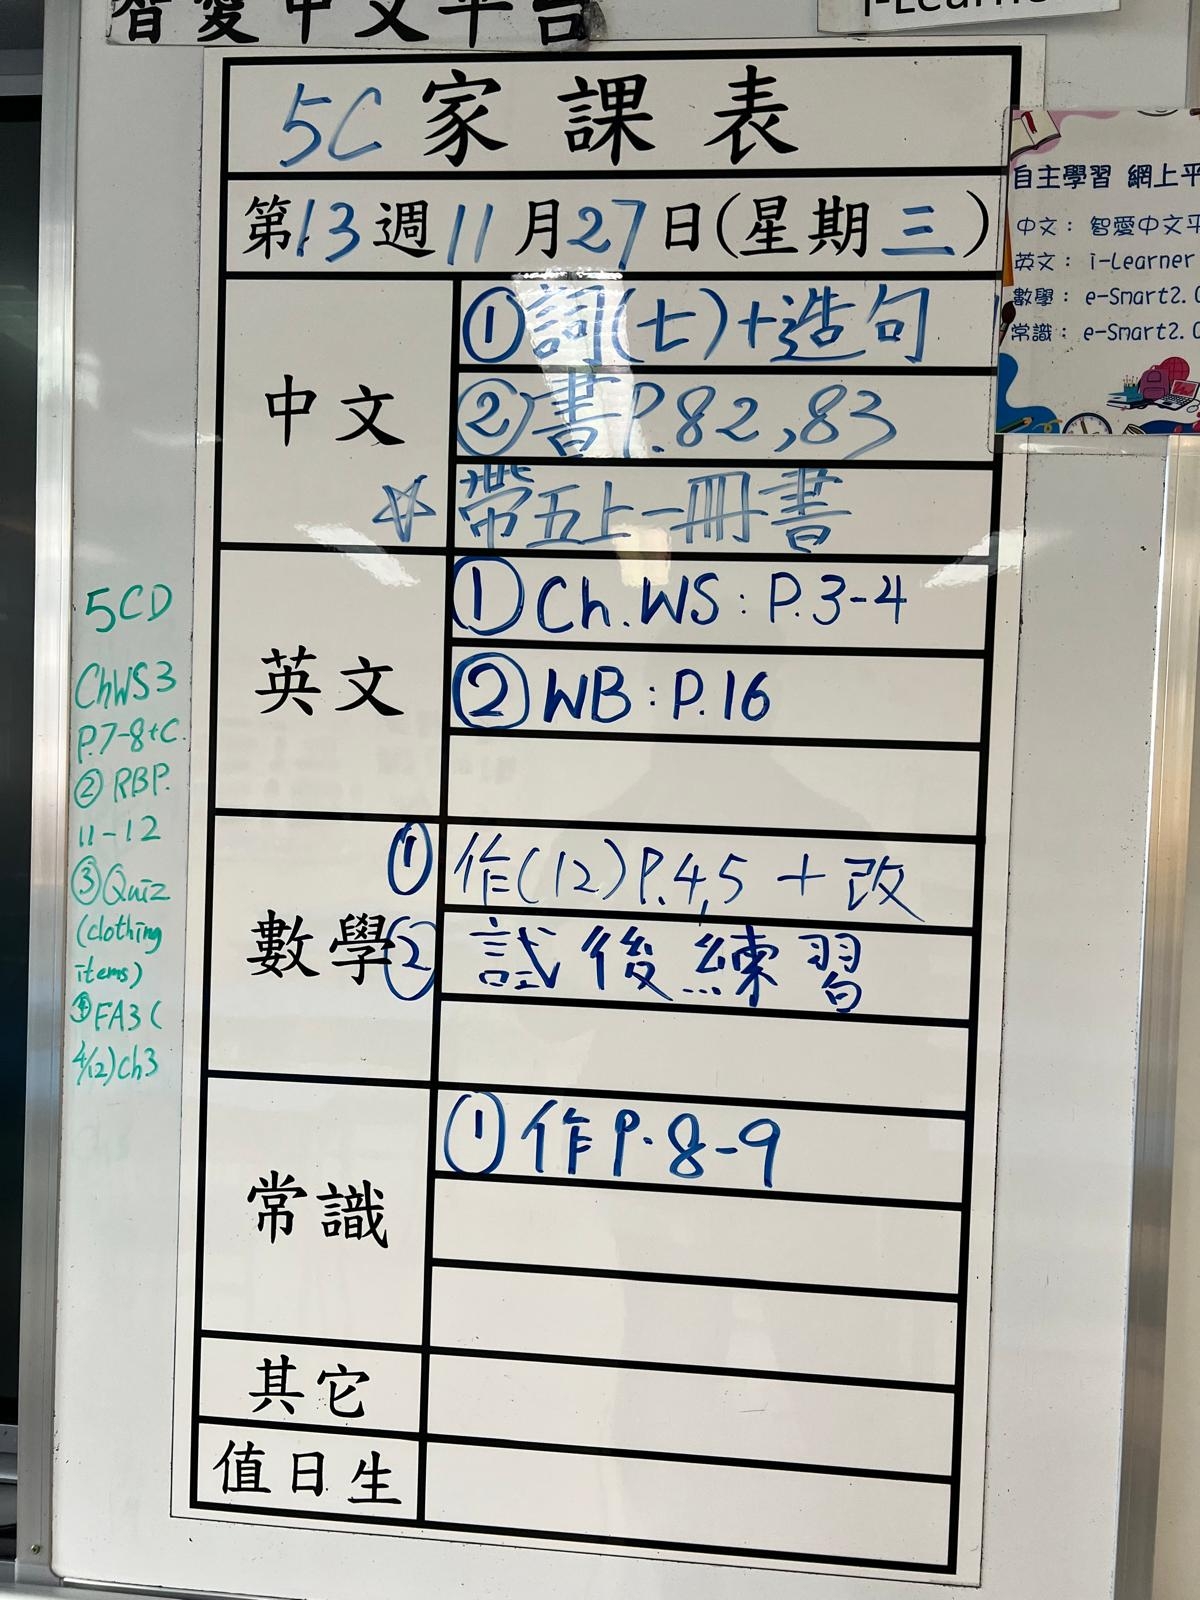 智愛中文平台
i-Learne
5C 家課表
第13週11月27日(星期三)
中文
①詞(七)+造句
②書P.82,83
☆帶五上一冊書
英文
①Ch.WS:P.3-4
②WB:P.16
數學
①作(12)P.4,5+改
②試後練習
常識
①作P.8-9
其它
值日生
5CD
ChWS3
P.7-8+C.
②RBP.
11-12
③Quiz
(clothing
items)
④FA3(
4/12)Ch3
自主學習 網上平
中文：智愛中文平
英文：i-Learner
數學：e-Smart2.0
常識：e-Smart2.0